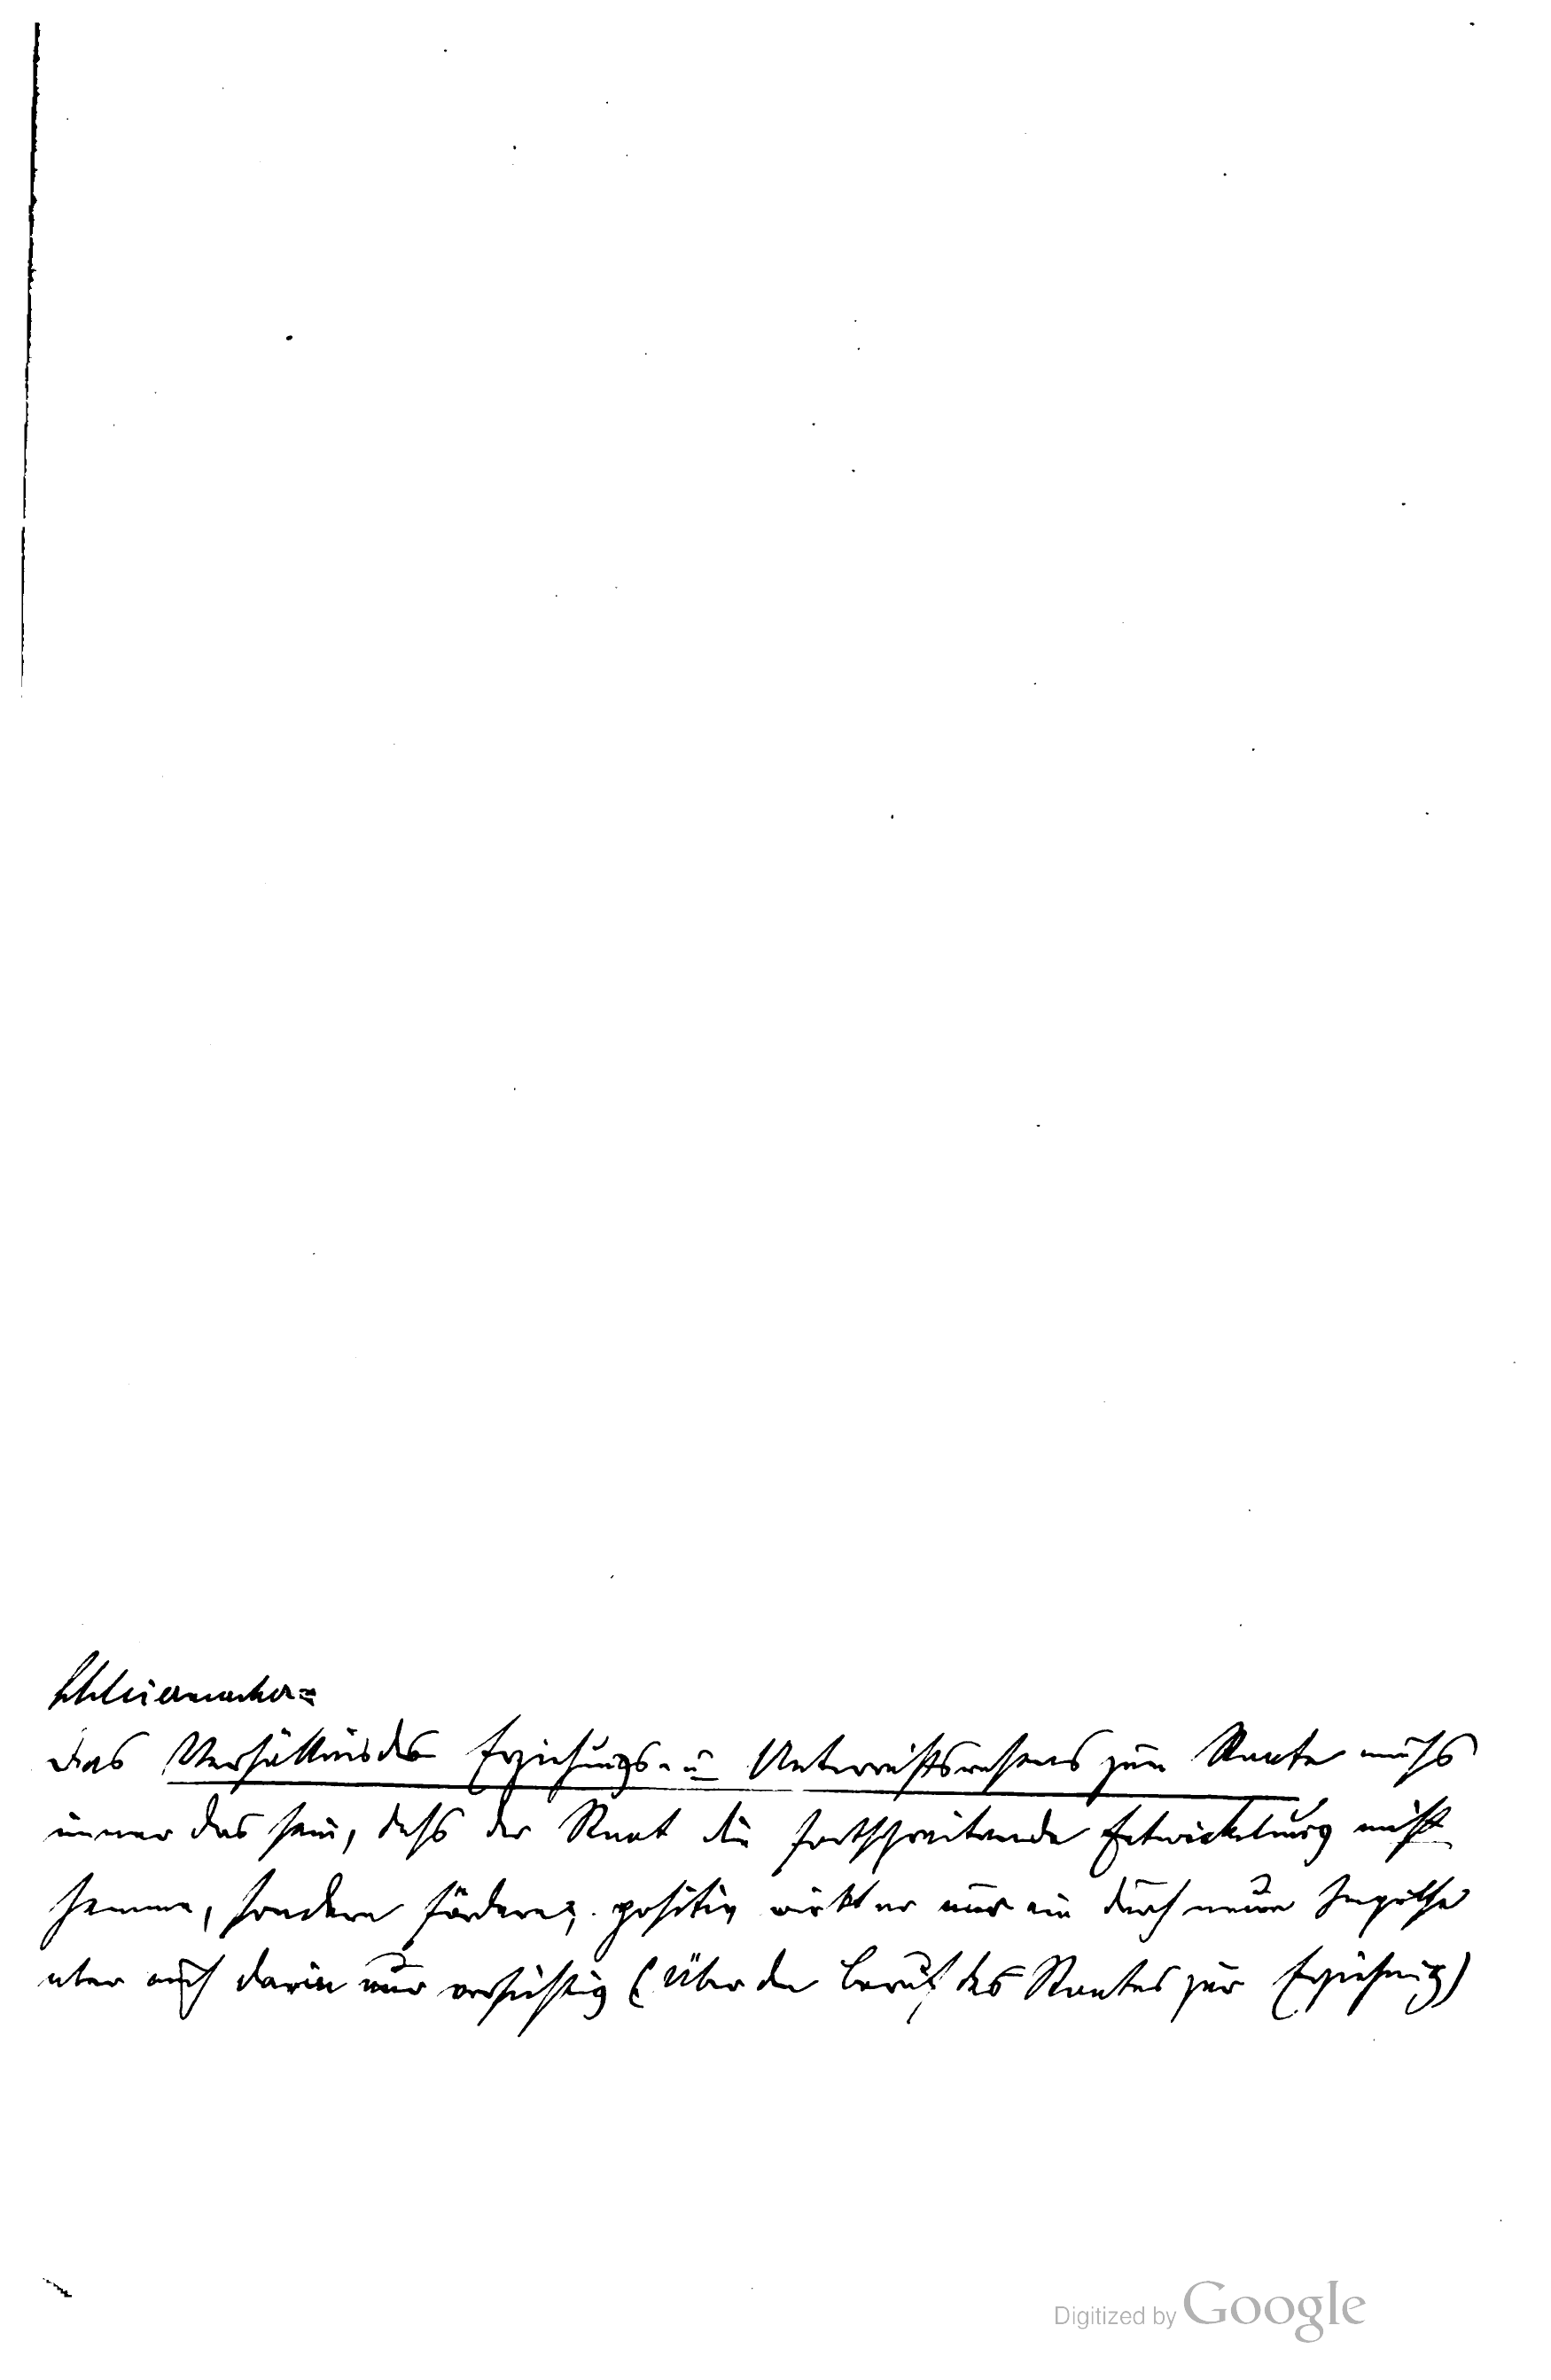 Schleiermacher:
Das Verhältnis des Erziehungs- u Unterrichtswesens zum Staate muss
immer das sein, dass der Staat die fortschreitende Entwickelung nicht
hemme, sondern fördere; positiv wirkt er nur ein durch neue Impulse
aber auch darin nur vorsichtig (Über den Beruf des Staates zur Erziehung)
Digitized by Google